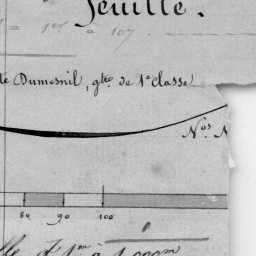 feuille.
= 1er à 107
te Dumesnil, gtre de 1e Classe
Nos N
80 90 100
lle d'1m à 1,000m